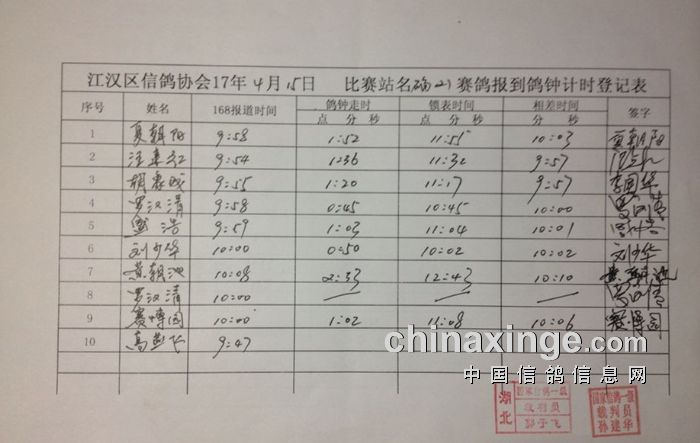 江汉区信鸽协会17年4月15日 比赛站名确山赛鸽报到鸽钟计时登记表
序号 姓名 168报道时间 鸽钟走时 锁表时间 相差时间 签字
点 分 秒 点 分 秒 点 分 秒
1 夏朝阳 9:58 1:52 11:55 10:03 夏朝阳
2 9:54 1:36 11:32 9:57
3 9:55 1:20 11:17 9:57
4 罗汉清 9:58 0:45 10:45 10:00
5 浩 9:59 1:03 11:04 10:01
6 刘少华 10:00 0:50 10:02 10:02 刘少华
7 黄朝池 10:08 2:33 12:43 10:10 黄朝池
8 罗汉清 10:00 — — —
9 赛博园 10:00 1:02 11:08 10:06 赛博园
10 高 9:47
chinaxinge.com
中国信鸽信息网
湖北
国家信鸽一级
裁判员
郭于飞
国家信鸽一级
裁判员
孙建华